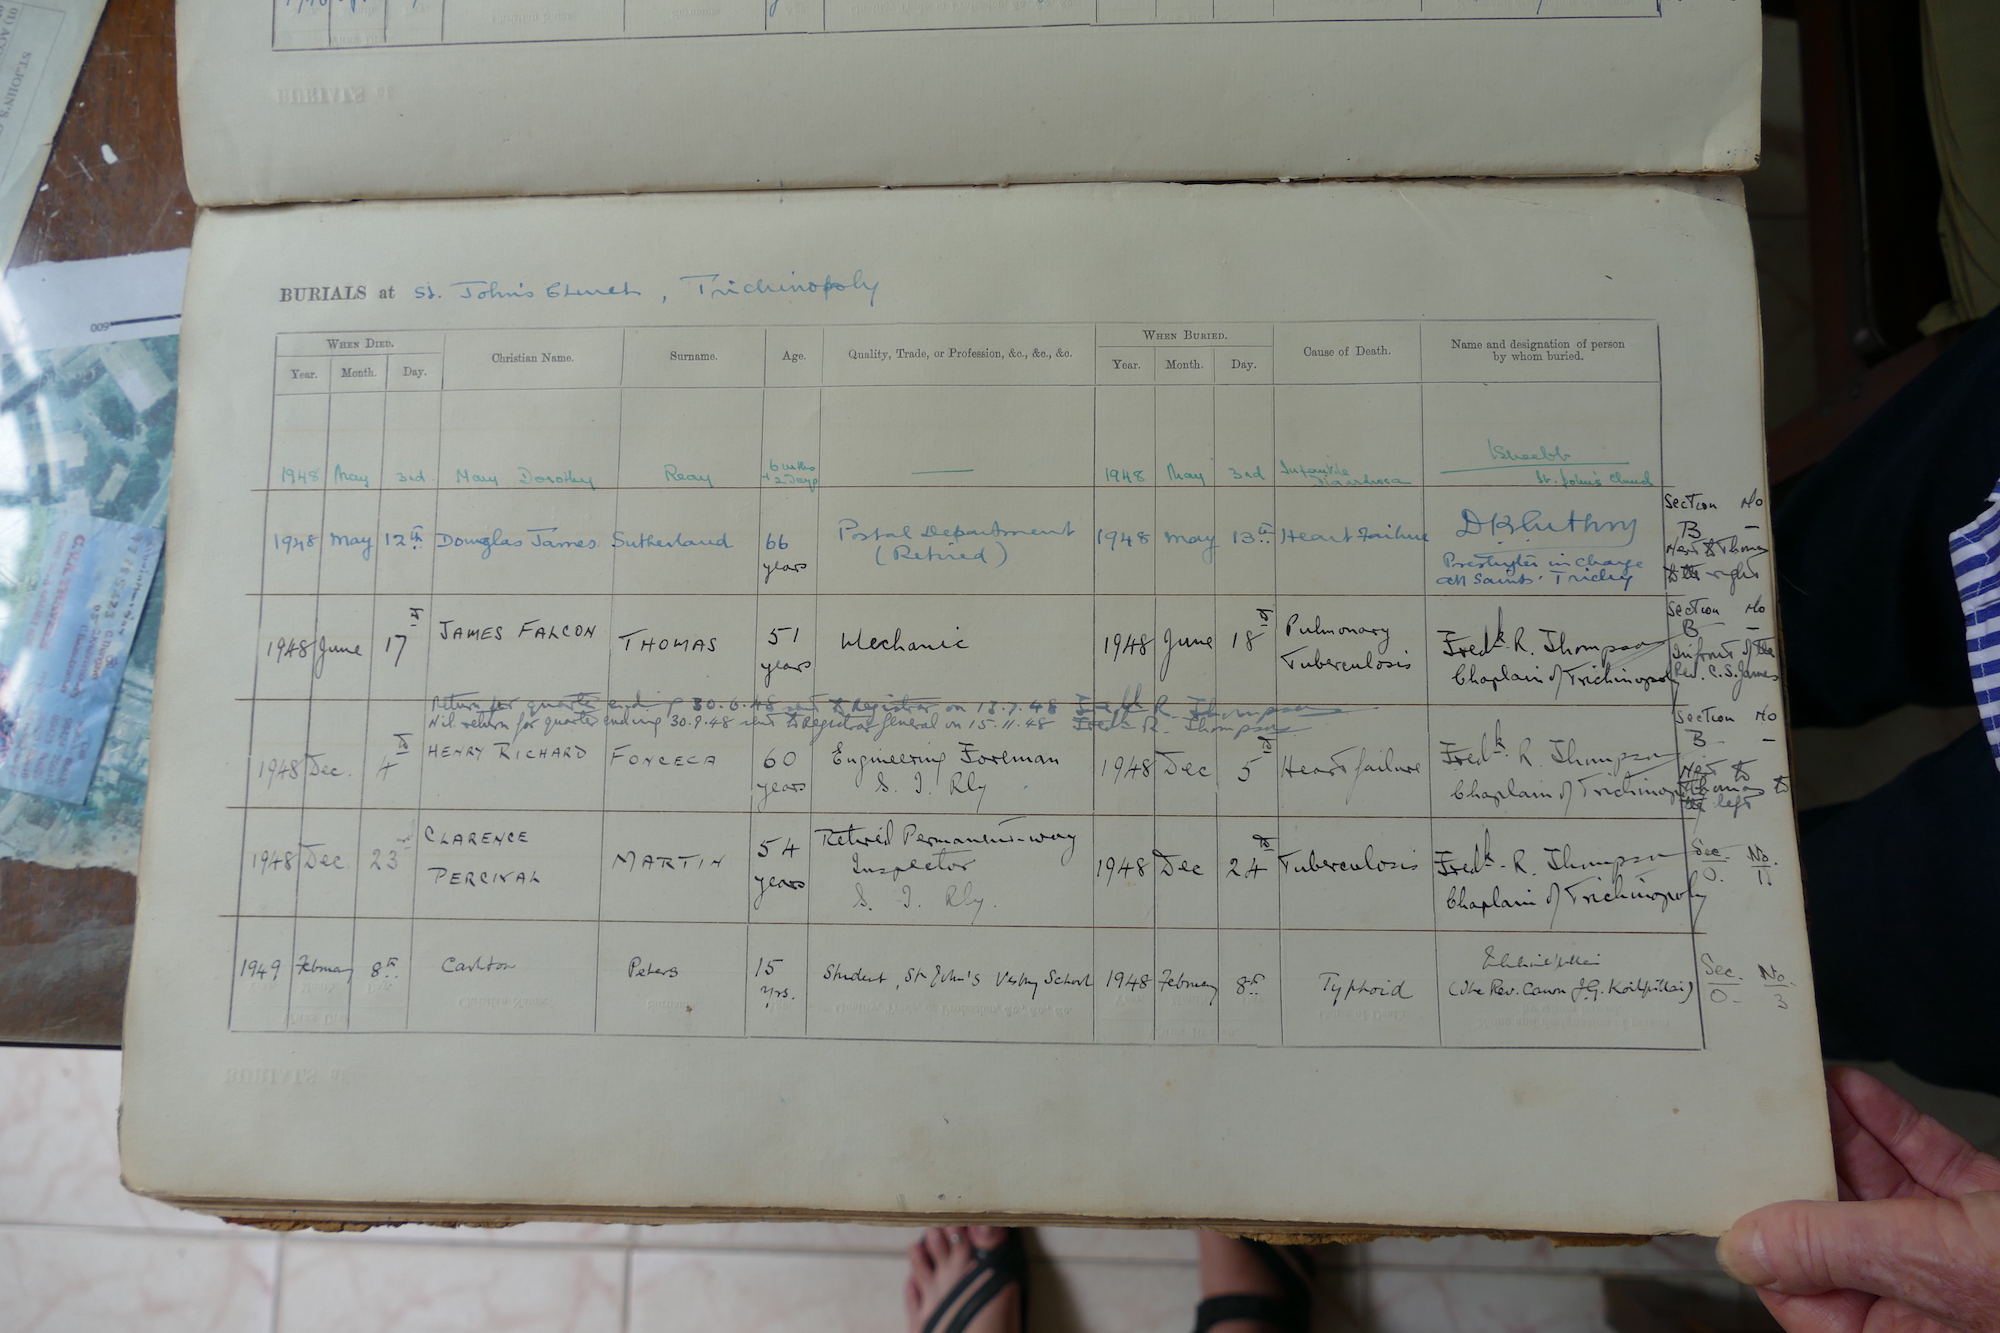 BURIALS at St. John's Church, Trichinopoly
WHEN DIED.
Year. Month. Day.
Christian Name.
Surname.
Age.
Quality, Trade, or Profession, &c., &c., &c.
WHEN BURIED.
Year. Month. Day.
Cause of Death.
Name and designation of person
by whom buried.
1948 May 3rd. Mary Dorothy Reay 6 mths
+ 2 days
1948 May 3rd Infantile
Diarrhoea
St. John's Church
1948 May 12th Douglas James Sutherland 66
years
Postal Department
(Retired)
1948 May 13th Heart Failure
Presbyter in charge
All Saints' Trichy
Section No
B –
Next to Thomas
to the right
1948 June 17th JAMES FALCON THOMAS 51
years
Mechanic
1948 June 18th Pulmonary
Tuberculosis
Fredk. R. Thompson
Chaplain of Trichinopoly
Section No
B –
Infront of the
Rev. C. S. James
Return for quarter ending 30.6.48 sent to Registrar on 13.7.48 Fredk R. Thompson
Nil return for quarter ending 30.9.48 sent to Registrar General on 15.11.48 Fredk R. Thompson
1948 Dec. 4th HENRY RICHARD FONCECA 60
years
Engineering Foreman
S. I. Rly
1948 Dec 5th Heart failure
Fredk. R. Thompson
Chaplain of Trichinopoly
Section No
B –
Next to
Thomas to
the left
1948 Dec. 23rd CLARENCE
PERCIVAL
MARTIN 54
years
Retired Permanent-way
Inspector
S. I. Rly.
1948 Dec 24th Tuberculosis
Fredk. R. Thompson
Chaplain of Trichinopoly
Sec. No.
O. 11
1949 February 8th Carlton Peters 15
yrs.
Student, St John's Vestry School
1948 February 8th Typhoid
(The Rev. Canon J.G. Koilpillai)
Sec. No.
O. 3